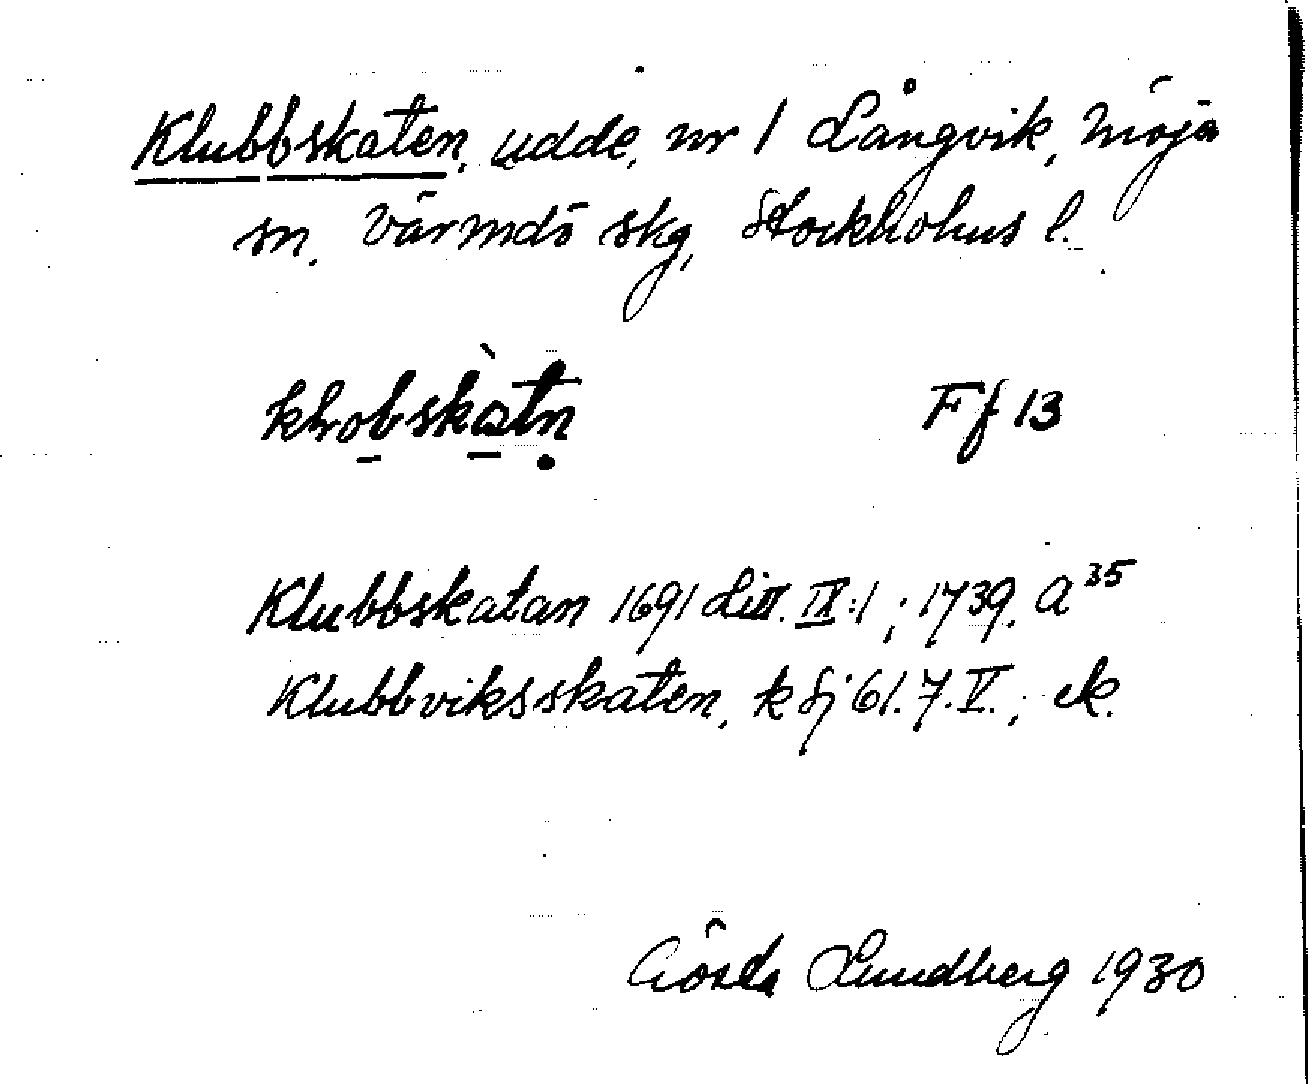 Klubbskaten, udde, nr 1 Långvik, Möja
sn. Värmdö skg, Stockholms l.
klωobskàtn̥ Ff 13
Klubbskatan 1691 Litt. IX:1; 1739. A³⁵
Klubbviksskaten, k Sj 61.7.V.; ek.
Gösta Lundberg 1930